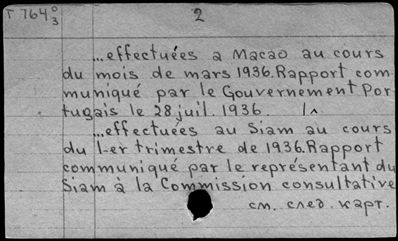 Т 764 0/3
2
...effectuées a Macao au cours
du mois de mars 1936. Rapport com
muniqué par le Gouvernement Por
tugais le 28 juil. 1936. 1^
...effectuées au Siam au cours
du 1-er trimestre de 1936. Rapport
communiqué par le représentant du
Siam à la Commission consultative
см. след. карт.